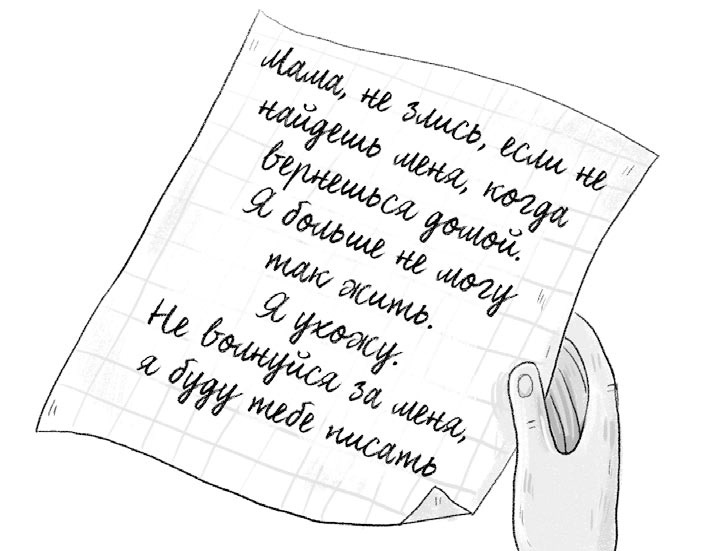 Мама, не злись, если не
найдешь меня, когда
вернешься домой.
Я больше не могу
так жить.
Я ухожу.
Не волнуйся за меня,
я буду тебе писать